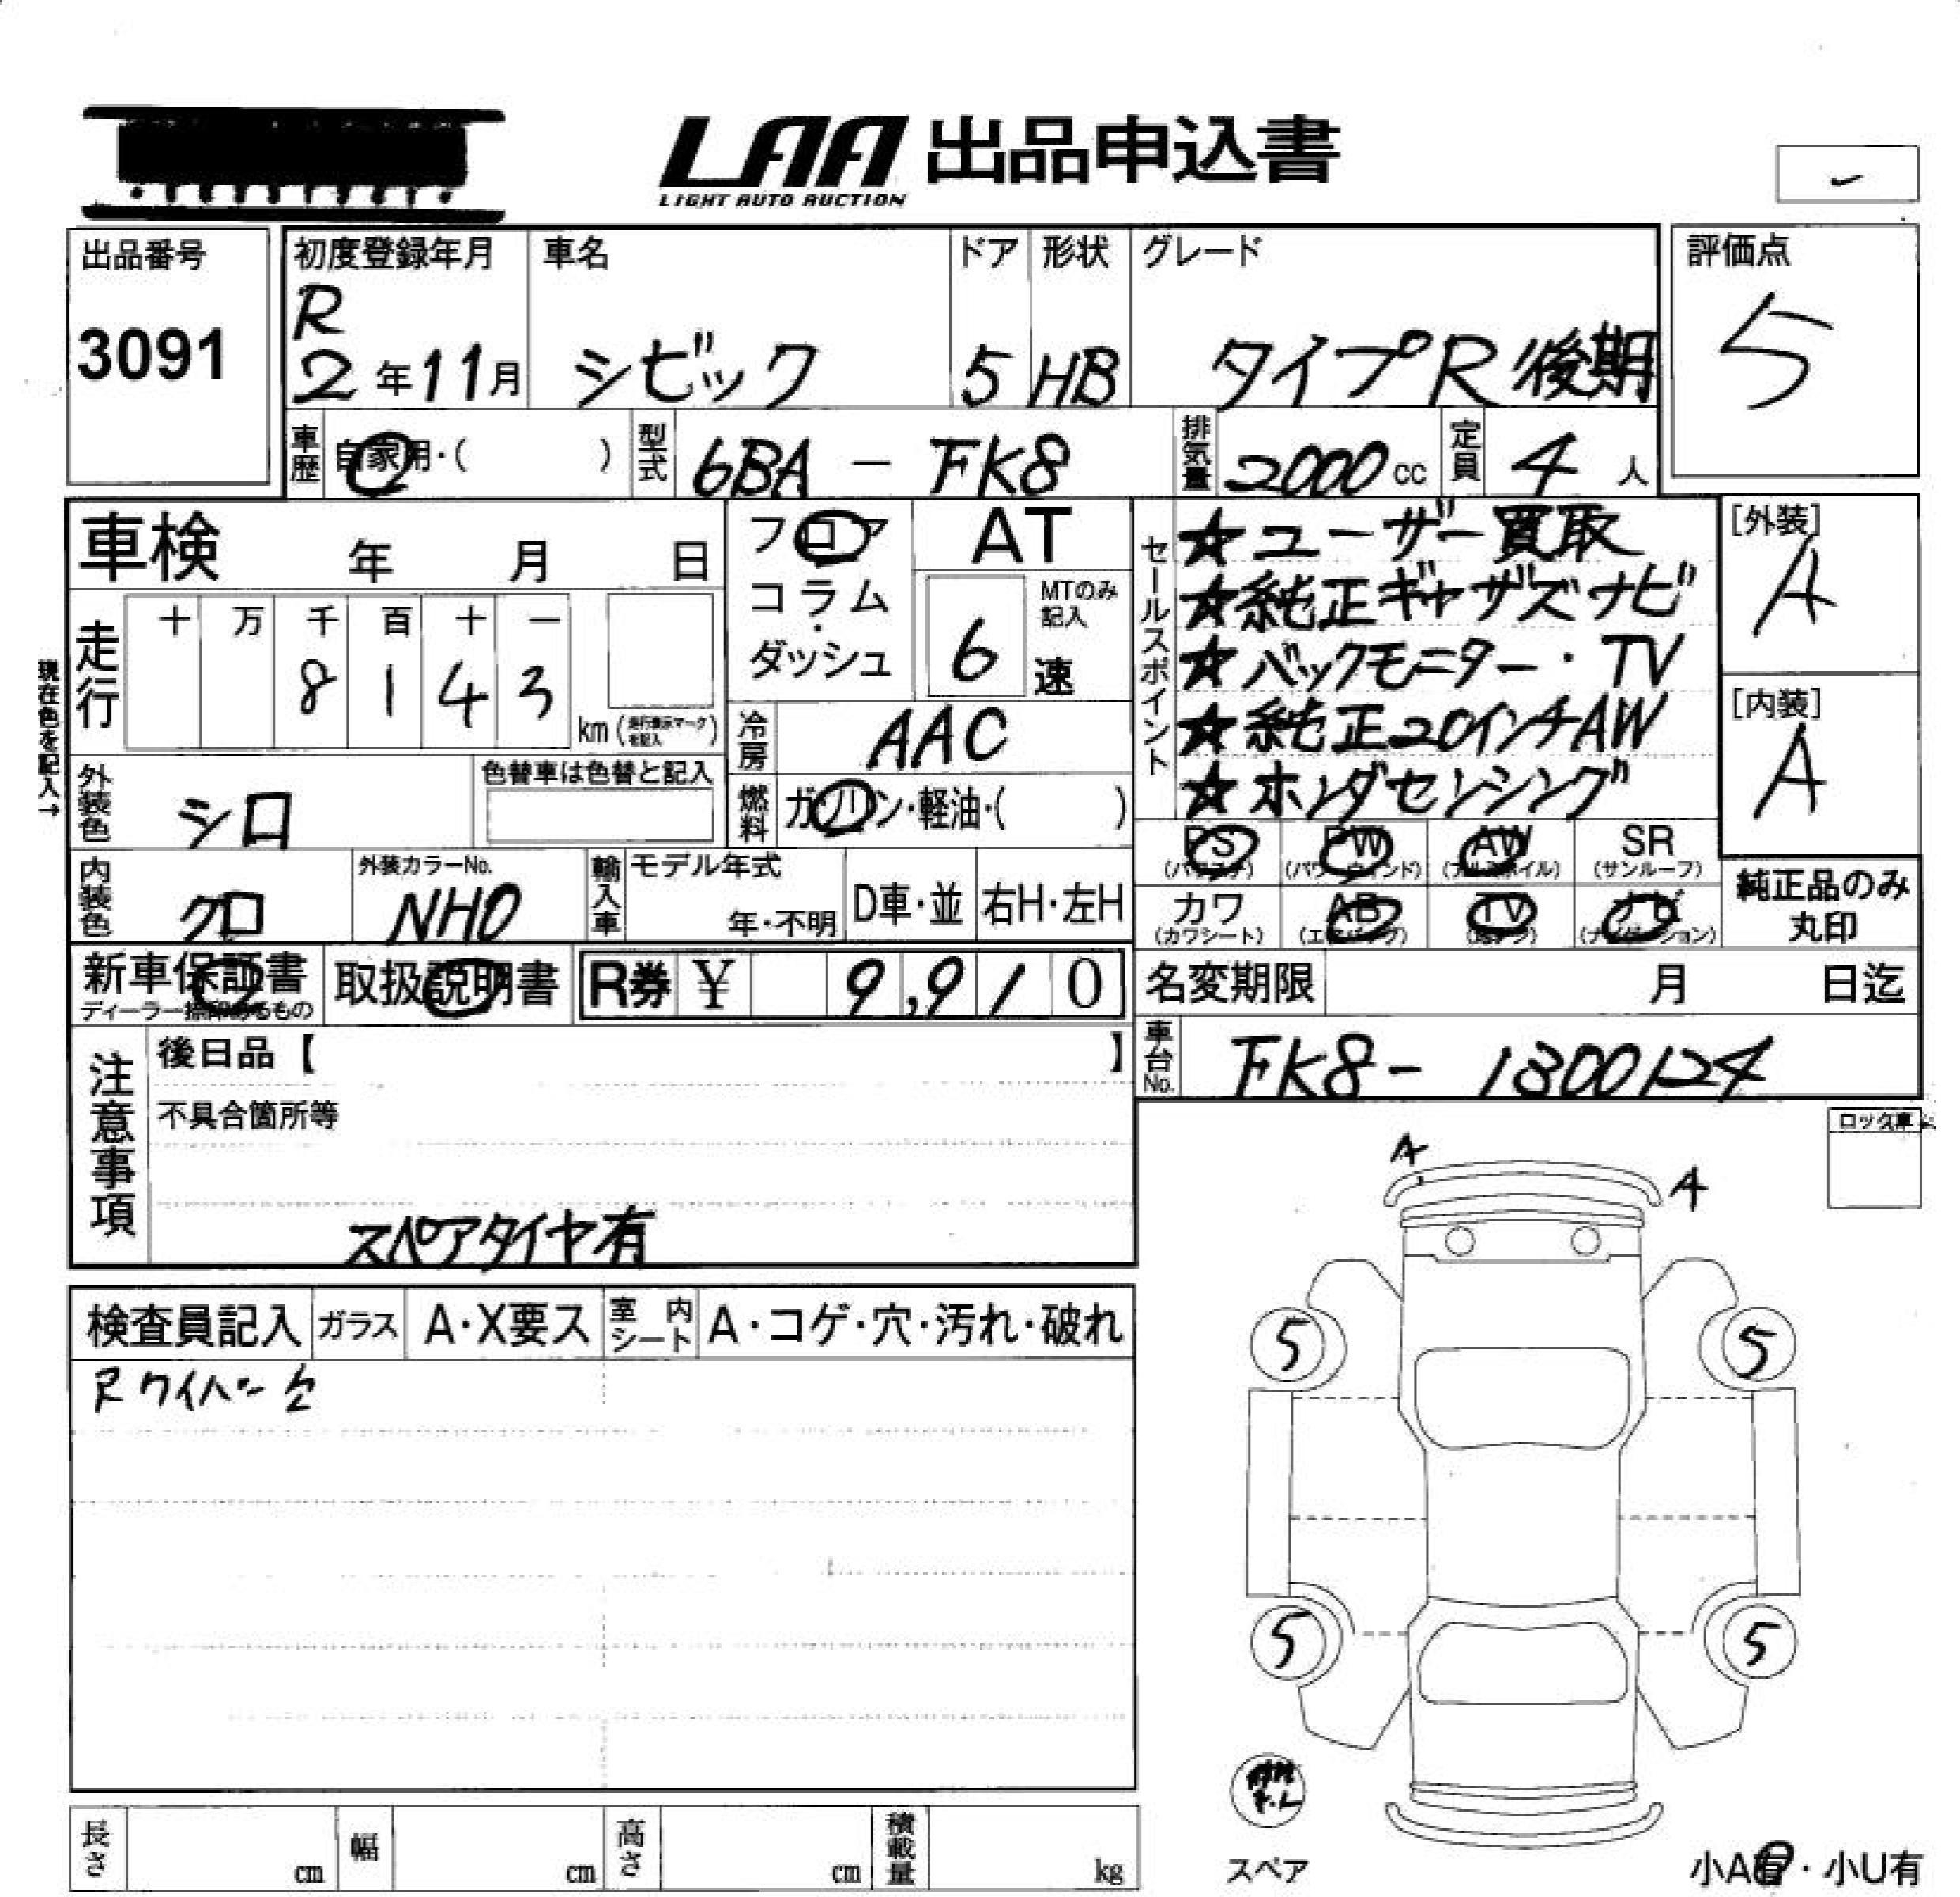 LAA 出品申込書
LIGHT AUTO AUCTION
出品番号
3091
初度登録年月
R
2年11月
車名
シビック
ドア
5
形状
HB
グレード
タイプR後期
評価点
5
車歴
自家用・(　　)
型式
6BA - FK8
排気量
2000cc
定員
4人
車検　年　月　日
フロア
コラム・
ダッシュ
AT
MTのみ記入
6速
セールスポイント
☆ユーザー買取
☆純正ギャザズナビ
☆バックモニター・TV
☆純正20インチAW
☆ホンダセンシング
[外装]
A
[内装]
A
現在色を記入→
走行
十 万 千 百 十 一
8 1 4 3
km (走行表示マークを記入)
冷房
AAC
外装色
シロ
色替車は色替と記入
燃料
ガソリン・軽油・(　　)
内装色
クロ
外装カラーNo.
NH0
輸入車
モデル年式
年・不明
D車・並
右H・左H
PS
(パワステ)
PW
(パワーウィンド)
AW
(アルミホイル)
SR
(サンルーフ)
カワ
(カワシート)
AB
(エアバッグ)
TV
ナビ
(ナビゲーション)
純正品のみ
丸印
新車保証書
ディーラー捺印あるもの
取扱説明書
R券 ¥ 9,910
名変期限　月　日迄
車台No.
FK8- 1300124
注意事項
後日品【　　】
不具合箇所等
スペアタイヤ有
ロック車
A
A
検査員記入
ガラス
A・X要ス
室内シート
A・コゲ・穴・汚れ・破れ
5
5
5
5
スペア
小A有・小U有
長さ　cm
幅　cm
高さ　cm
積載量　kg